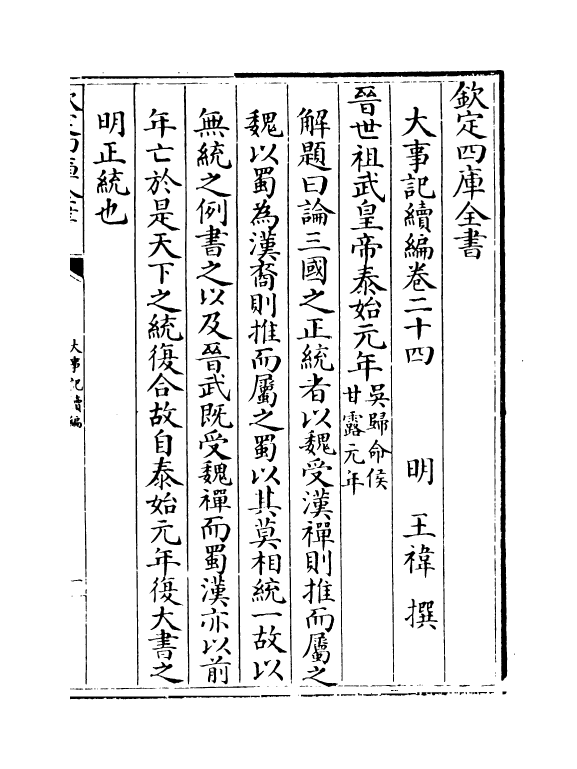 欽定四庫全書
大事記續編卷二十四 明 王禕 撰
晉世祖武皇帝泰始元年吳歸命侯甘露元年
解題曰論三國之正統者以魏受漢禪則推而屬之
魏以蜀為漢裔則推而屬之蜀以其莫相統一故以
無統之例書之以及晉武既受魏禪而蜀漢亦以前
年亡於是天下之統復合故自泰始元年復大書之
明正統也
欽定四庫全書
大事記續編
一